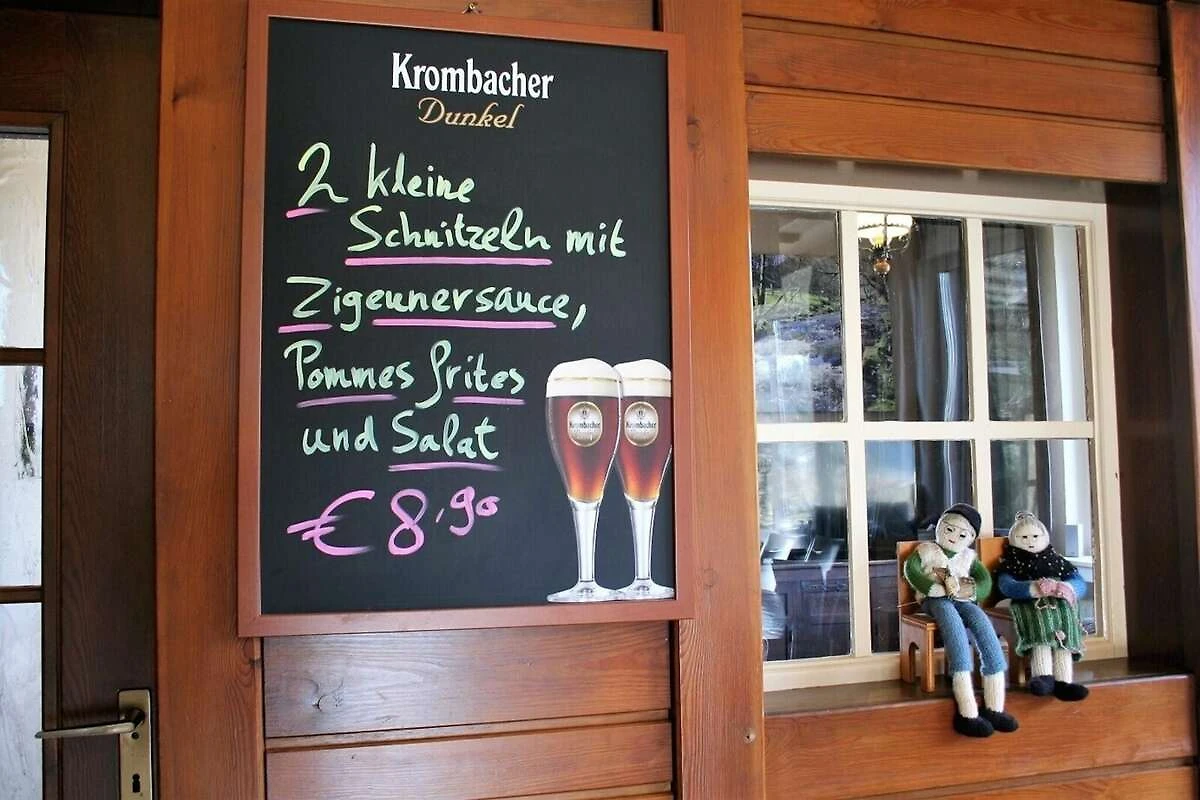 Krombacher
Dunkel
2 kleine
Schnitzeln mit
Zigeunersauce,
Pommes frites
und Salat
€ 8,90
Krombacher
Krombacher